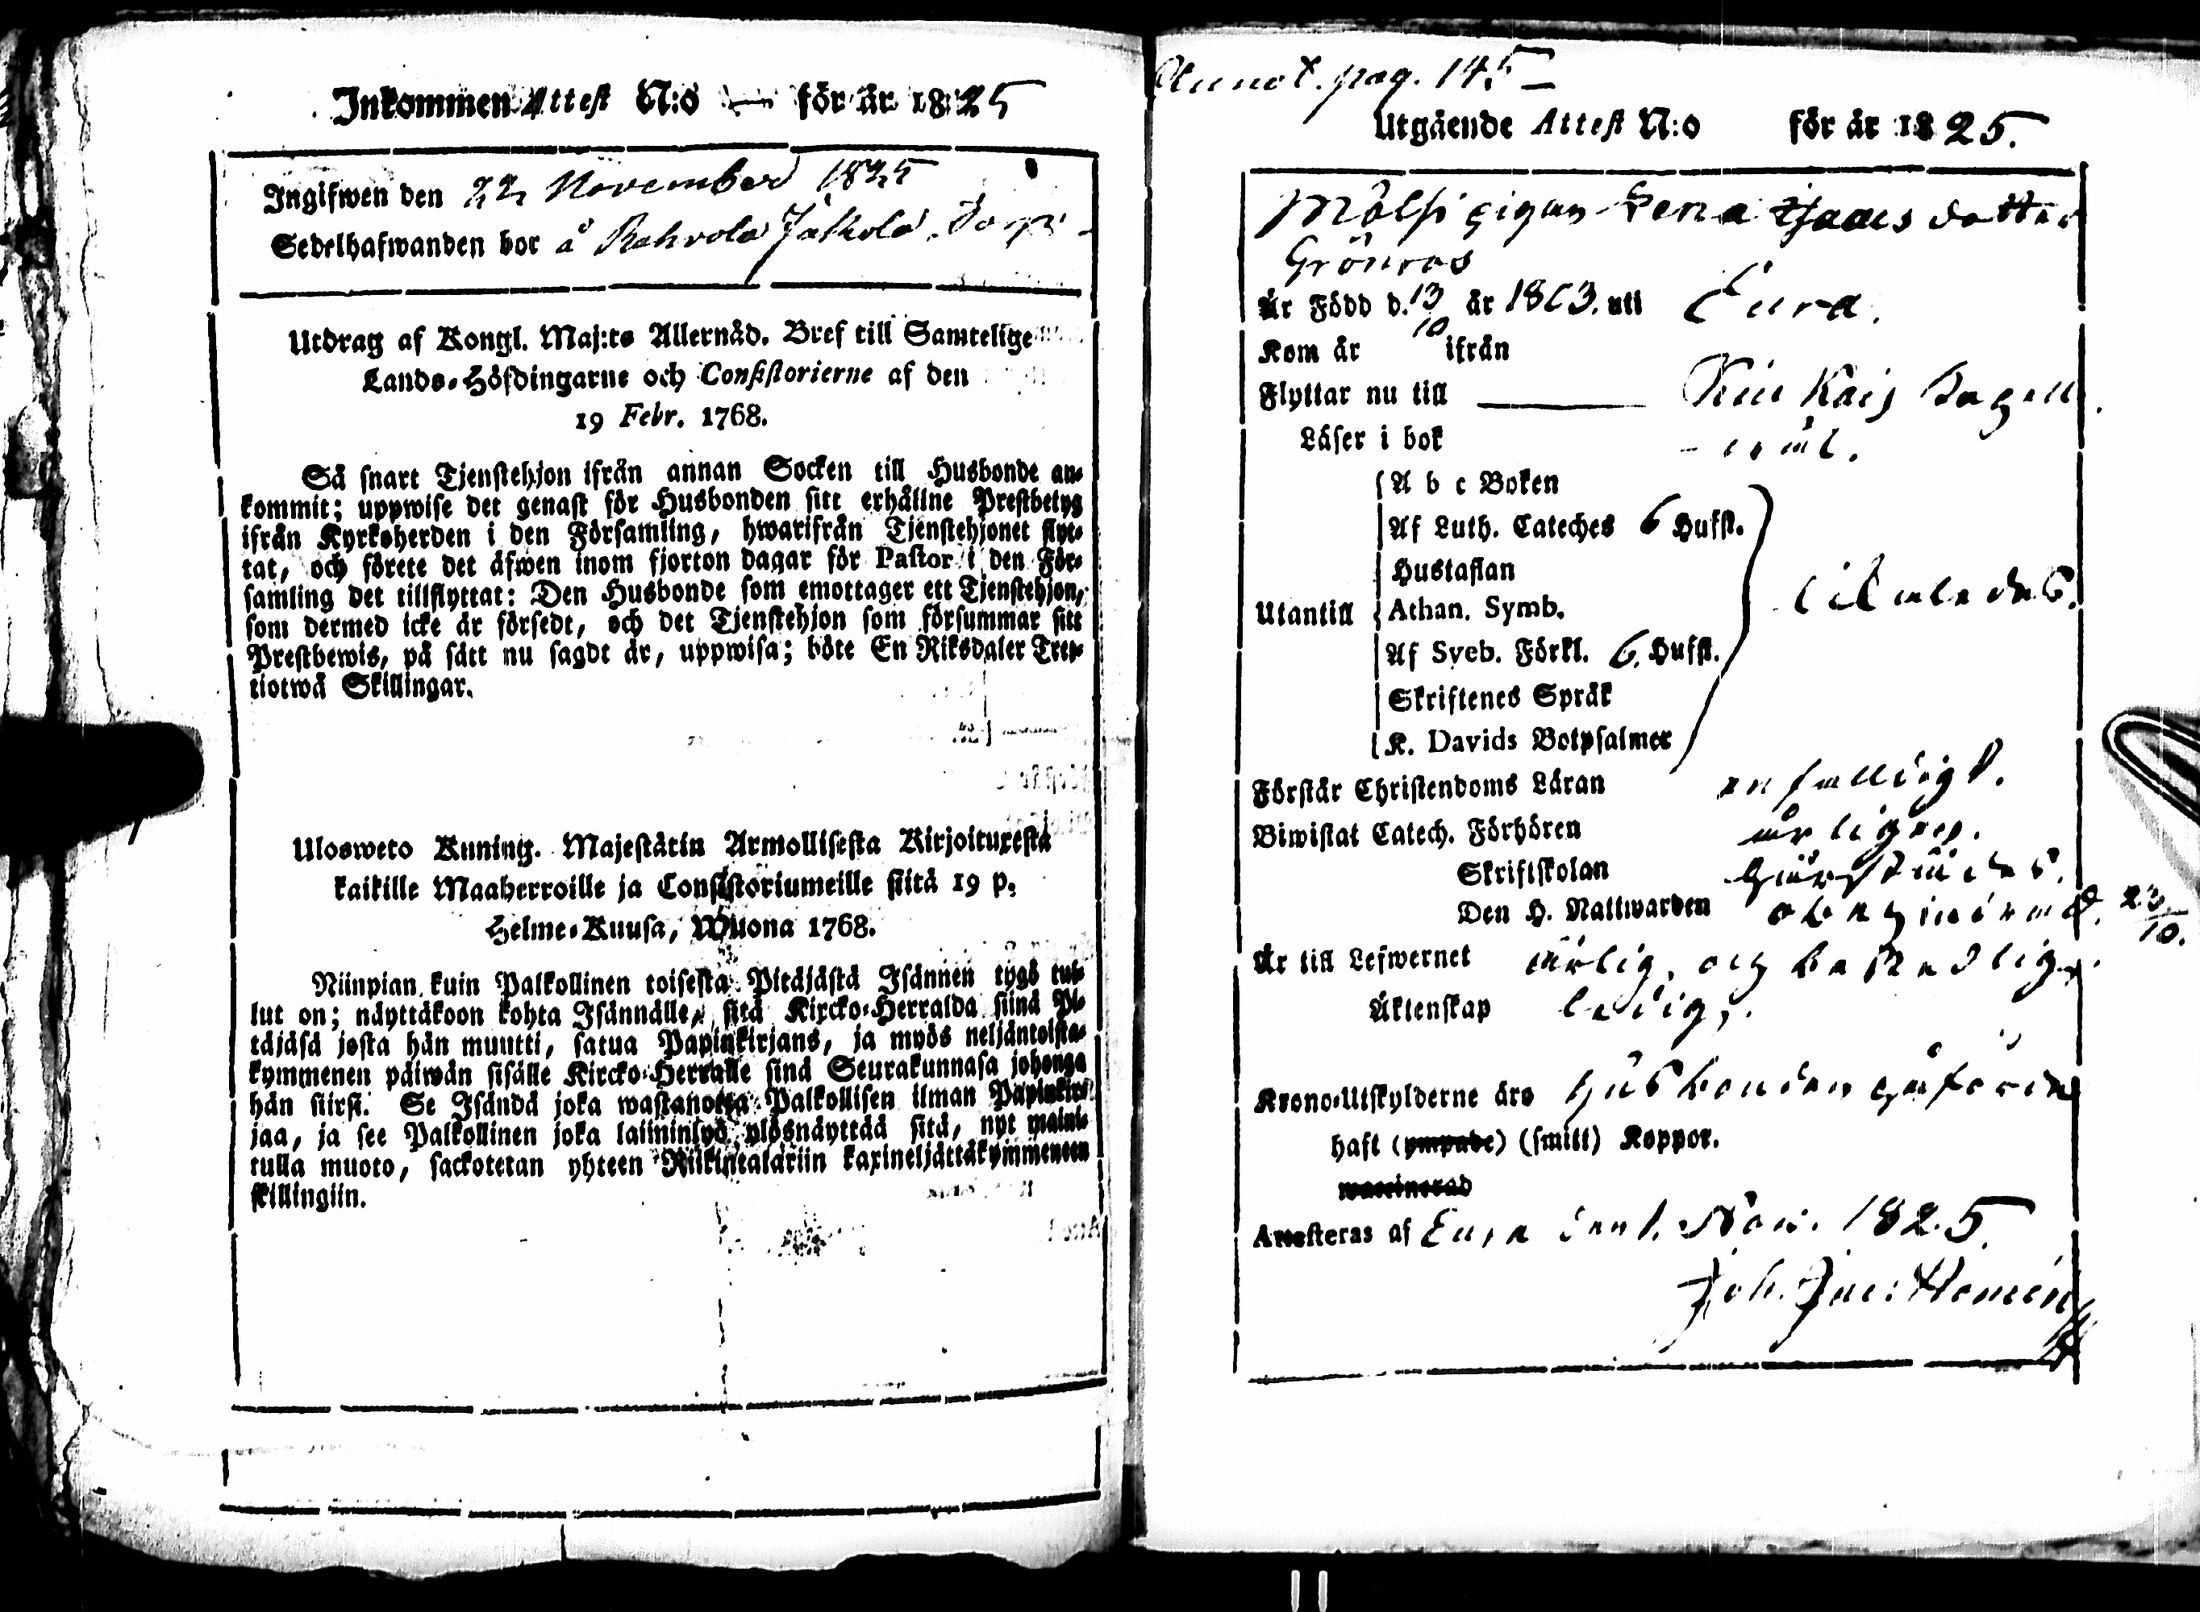 Inkommen Attest N:o — för år 1825
Ingifwen den 22 November 1825
Sedelhafwanden bor å Rahvola Jakola
Utdrag af Kongl. Maj:ts Allernåd. Bref till Samtelige
Lands-Höfdingarne och Consistorierne af den
19 Febr. 1768.
Så snart Tjenstehjon ifrån annan Socken till Husbonde an-
kommit; uppwise det genast för Husbonden sitt erhållne Prestbetyg
ifrån Kyrkoherden i den Församling, hwarifrån Tjenstehjonet flyt-
tat, och förete det äfwen inom fjorton dagar för Pastor i den För-
samling det tillflyttat: Den Husbonde som emottager ett Tjenstehjon,
som dermed icke är försedt, och det Tjenstehjon som försummar sitt
Prestbewis, på sätt nu sagdt är, uppwisa; böte En Riksdaler Tret-
tiotwå Skillingar.
Ulosweto Kuning. Majestätin Armollisesta Kirjoituxesta
kaikille Maaherroille ja Consistoriumeille siitä 19 p.
Helme-Kuusa, Wuona 1768.
Niinpian kuin Palkollinen toisesta Pitäjästä Isännen tygö tul-
lut on; näyttäkoon kohta Isännälle, sitä Kircko-Herralda siinä Pi-
täjäsä josta hän muutti, satua Papinkirjans, ja myös neljäntoista-
kymmenen päiwän sisälle Kircko-Herralle sinä Seurakunnasa johonga
hän siirsi. Se Isändä joka wastanotta Palkollisen ilman Papinkir-
jaa, ja see Palkollinen joka laiminlyö ylösnäyttää sitä, nyt maini-
tulla muoto, sackotetan yhteen Riikintalariin kaxineljättäkymmeneen
skillingiin.
Annot. pag. 145
Utgående Attest N:o för år 1825.
Pigan Lena Isaacs dotter
Grönroos
Är Född d. 13/10 år 1803. uti Eura.
Kom år ifrån
Flyttar nu till Kiukais Capell.
Läser i bok
A b c Boken
Af Luth. Cateches 6 Hufst.
Hustaflan
Utantill Athan. Symb. likaledes.
Af Sveb. Förkl. 6. Hufst.
Skriftenes Språk
K. Davids Botpsalmer
Förstår Christendoms Läran enfalldigt.
Biwistat Catech. Förhören årligen.
Skriftskolan
Den H. Nattwarden 23/10.
Är till Lefwernet ärlig, och beskedlig.
Äktenskap ledig,
Krono-Utskylderne äro Husbonden påförde
haft (ympade) (smitt) Koppor.
waccinerad
Attesteras af Eura den 1. Nov. 1825.
Joh. Jac: Homén